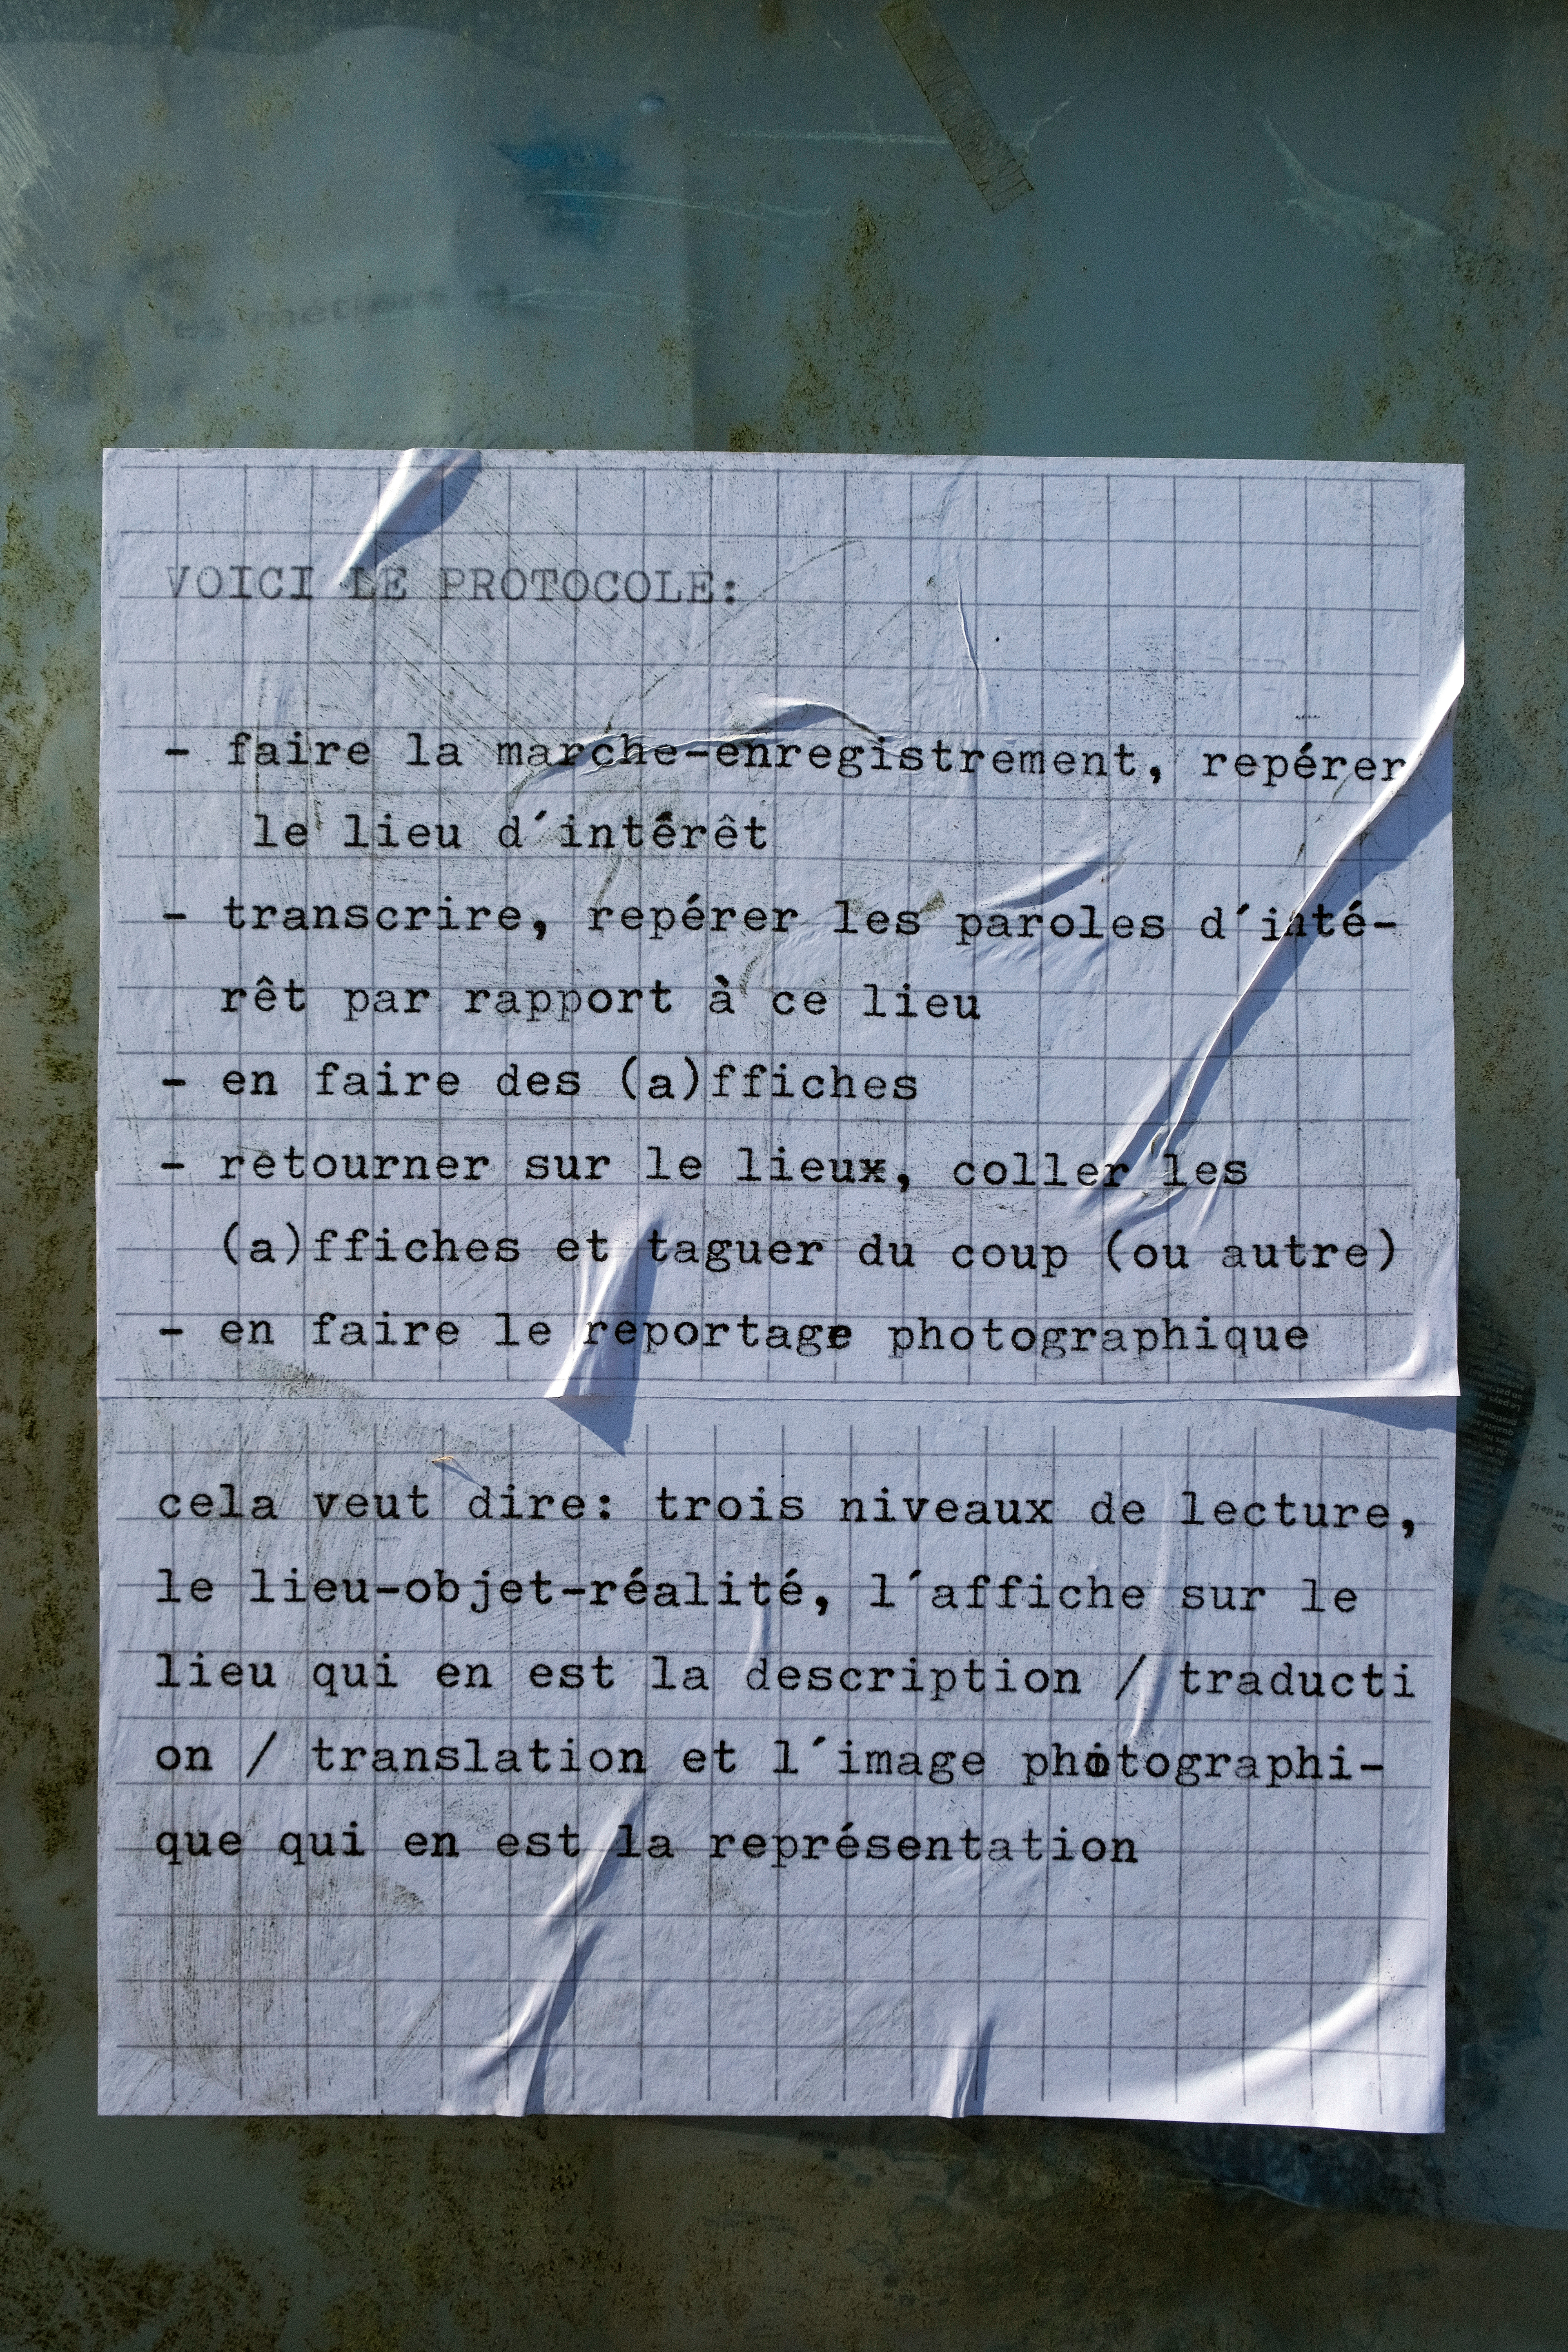 VOICI LE PROTOCOLE:
- faire la marche-enregistrement, repérer
le lieu d´intérêt
- transcrire, repérer les paroles d´inté-
rêt par rapport à ce lieu
- en faire des (a)ffiches
- retourner sur le lieux, coller les
(a)ffiches et taguer du coup (ou autre)
- en faire le reportage photographique
cela veut dire: trois niveaux de lecture,
le lieu-objet-réalité, l´affiche sur le
lieu qui en est la description / traducti
on / translation et l´image photographi-
que qui en est la représentation